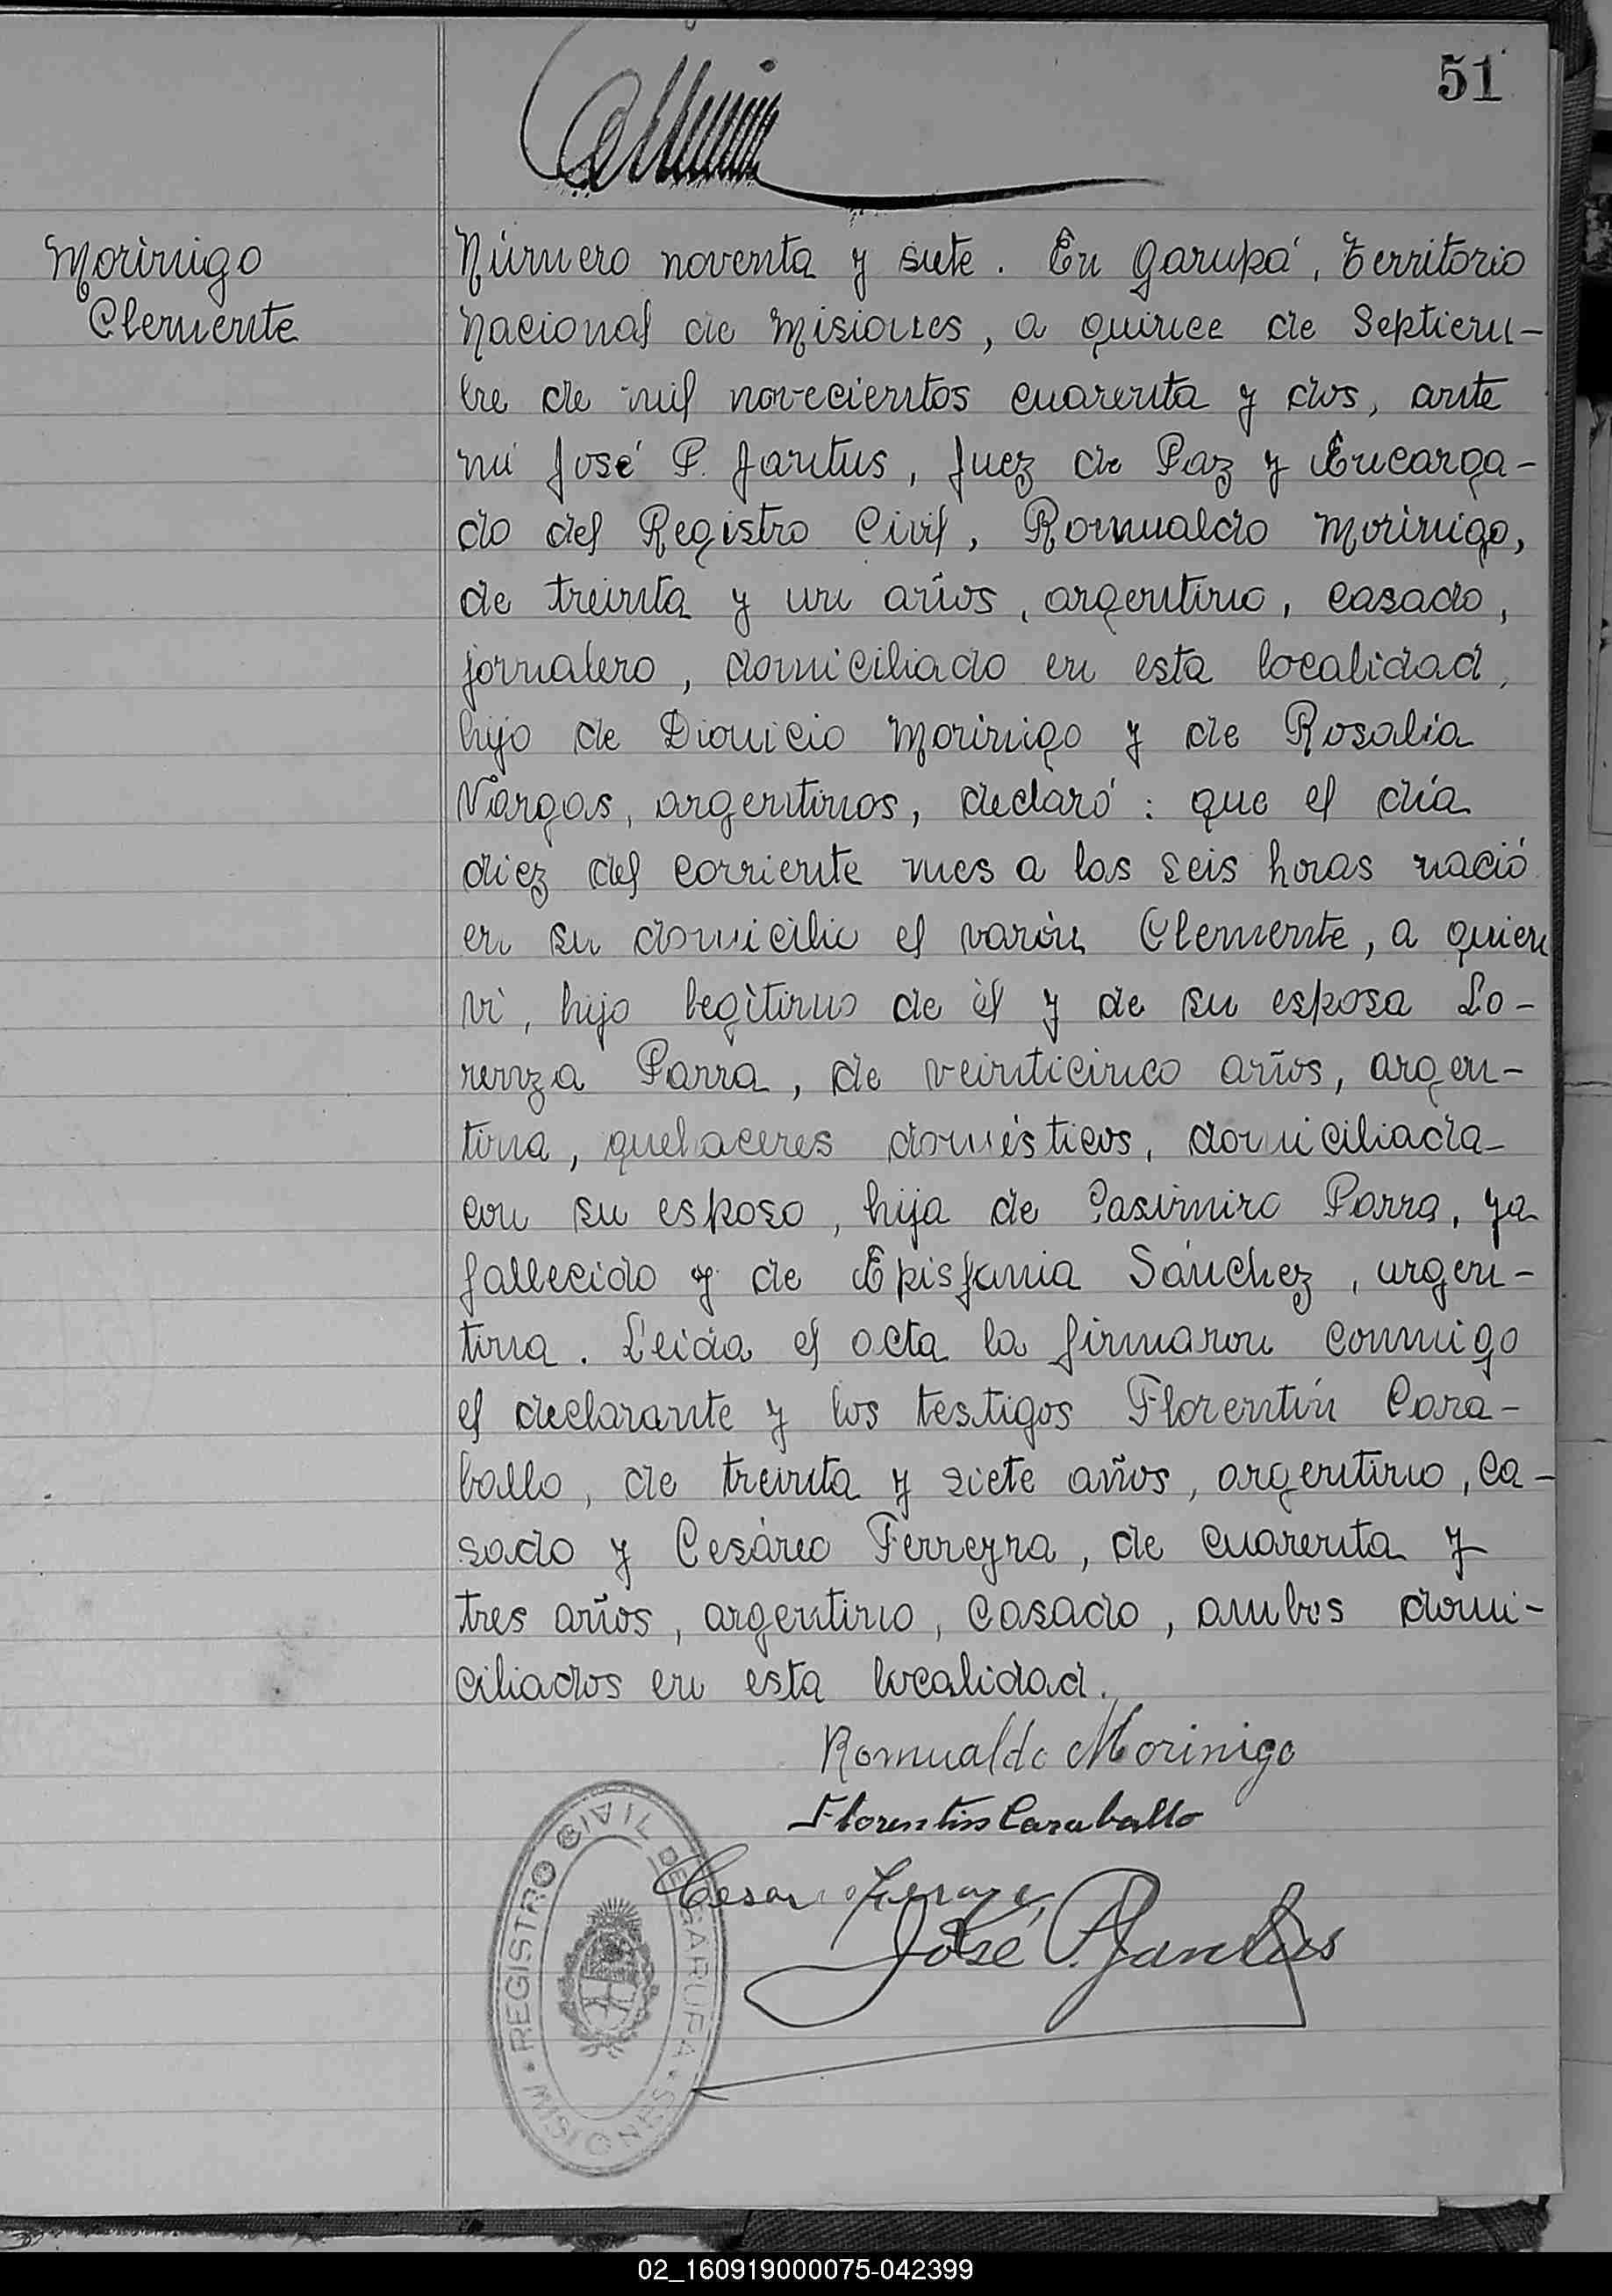 51
Morínigo
Clemente
Número noventa y siete. En Garupá, Territorio
Nacional de Misiones, a quince de Septiem-
bre de mil novecientos cuarenta y dos, ante
mí José P. Jantus, Juez de Paz y Encarga-
do del Registro Civil, Romualdo Morínigo,
de treinta y un años, argentino, casado,
jornalero, domiciliado en esta localidad,
hijo de Dionicio Morínigo y de Rosalía
Vargas, argentinos, declaró: que el día
diez del corriente mes a las seis horas nació
en su domicilio el varón Clemente, a quien
ví, hijo legítimo de él y de su esposa Lo-
renza Parra, de veinticinco años, argen-
tina, quehaceres domésticos, domiciliada
con su esposo, hija de Casimiro Parra, ya
fallecido y de Episfania Sánchez, argen-
tina. Leida el acta la firmaron conmigo
el declarante y los testigos Florentín Cara-
ballo, de treinta y siete años, argentino, ca-
sado y Cesáreo Ferreyra, de cuarenta y
tres años, argentino, casado, ambos domi-
ciliados en esta localidad.
Romualdo Morinigo
Florentin Caraballo
José P. Jantus
REGISTRO CIVIL DE GARUPA
MISIONES
02_160919000075-042399